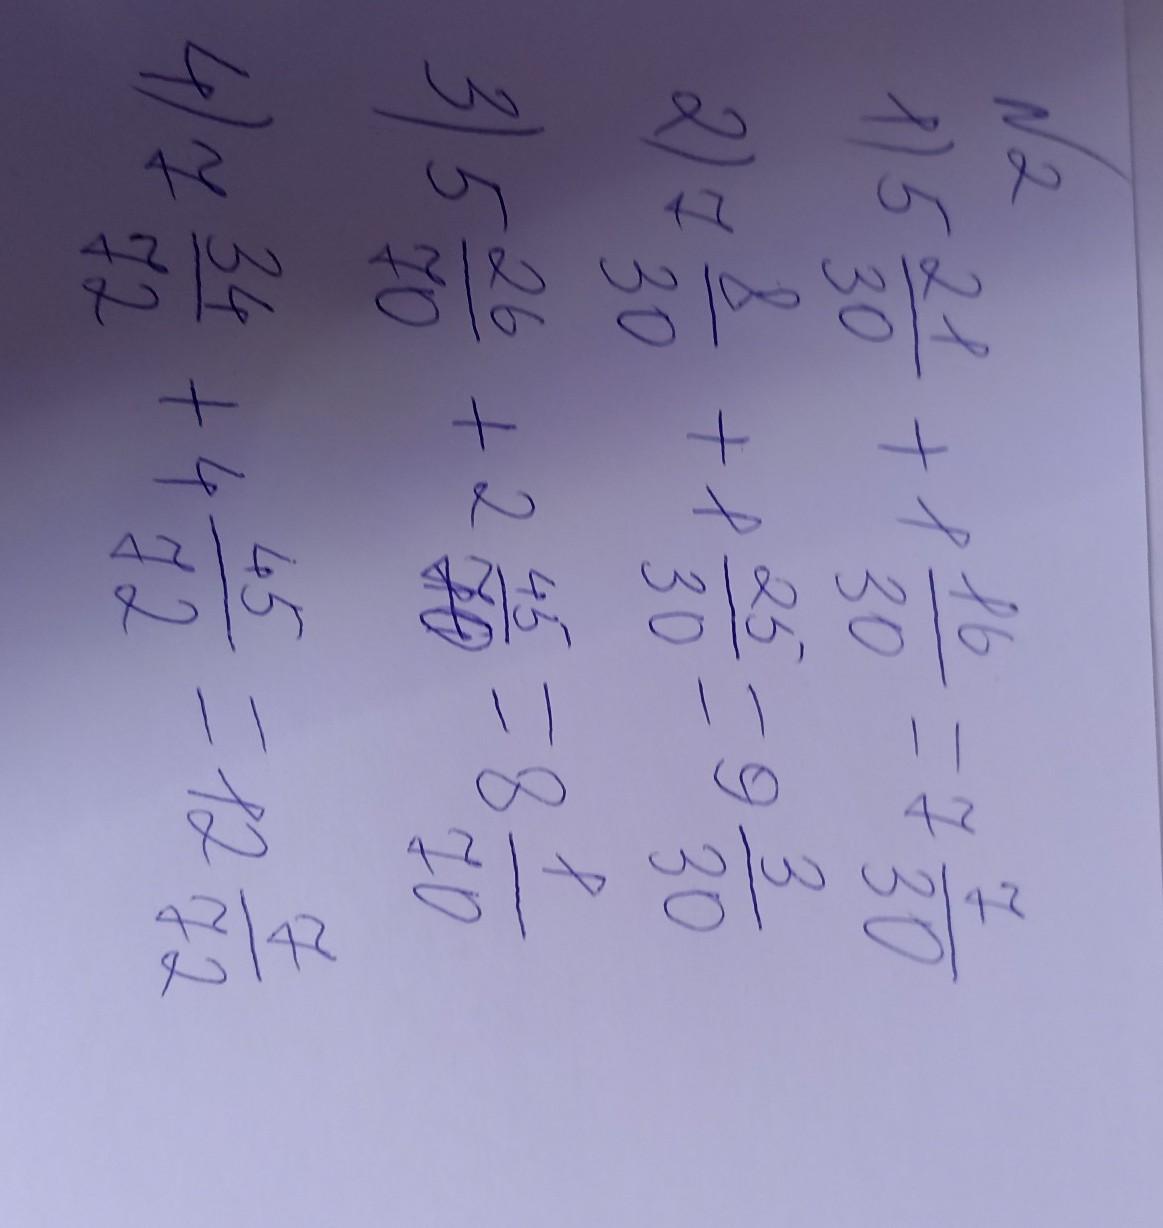 №2
1) 5 21/30 + 1 16/30 = 7 7/30
2) 7 8/30 + 1 25/30 = 9 3/30
3) 5 26/70 + 2 45/70 = 8 1/70
4) 7 34/72 + 4 45/72 = 12 7/72